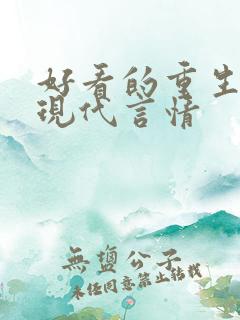 好看的重生
現代言情
無鹽公子
未经同意禁止转载